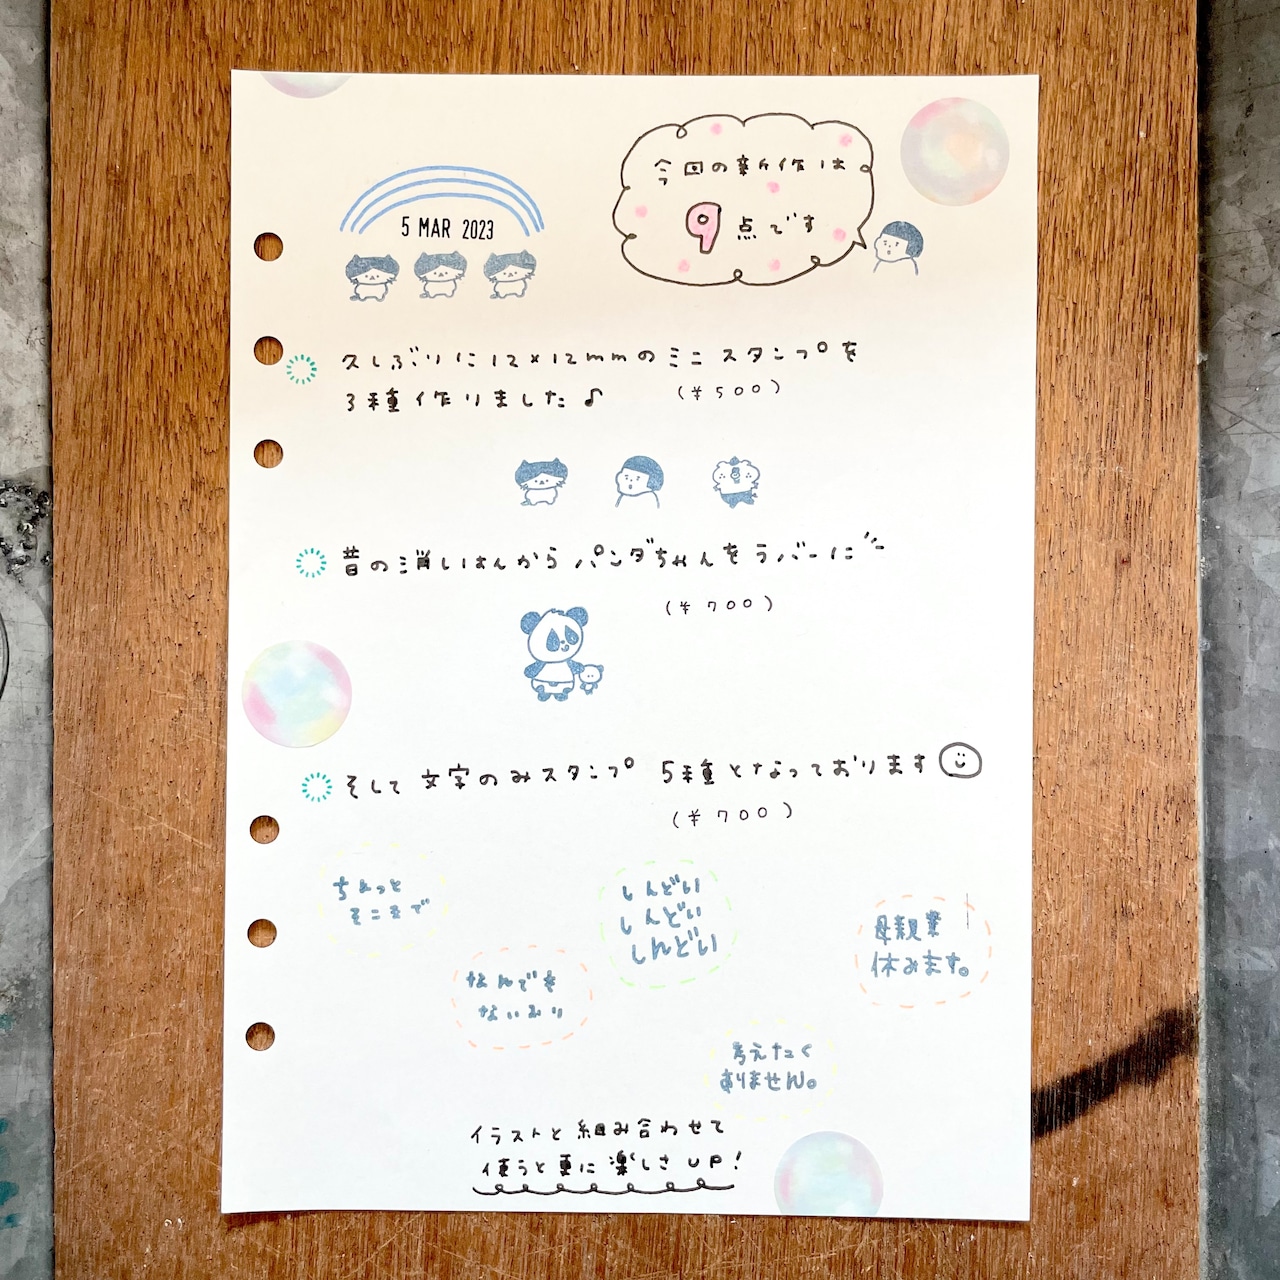 今回の新作は
9点です
5 MAR 2023
久しぶりに12×12mmのミニスタンプを
3種作りました♪ (¥500)
昔の消しはんからパンダちゃんをラバーに
(¥700)
そして文字のみスタンプ 5種となっております
(¥700)
ちょっと
そこまで
しんどい
しんどい
しんどい
母親業
休みます。
なんでも
ないふり
考えたく
ありません。
イラストと組み合わせて
使うと更に楽しさUP!